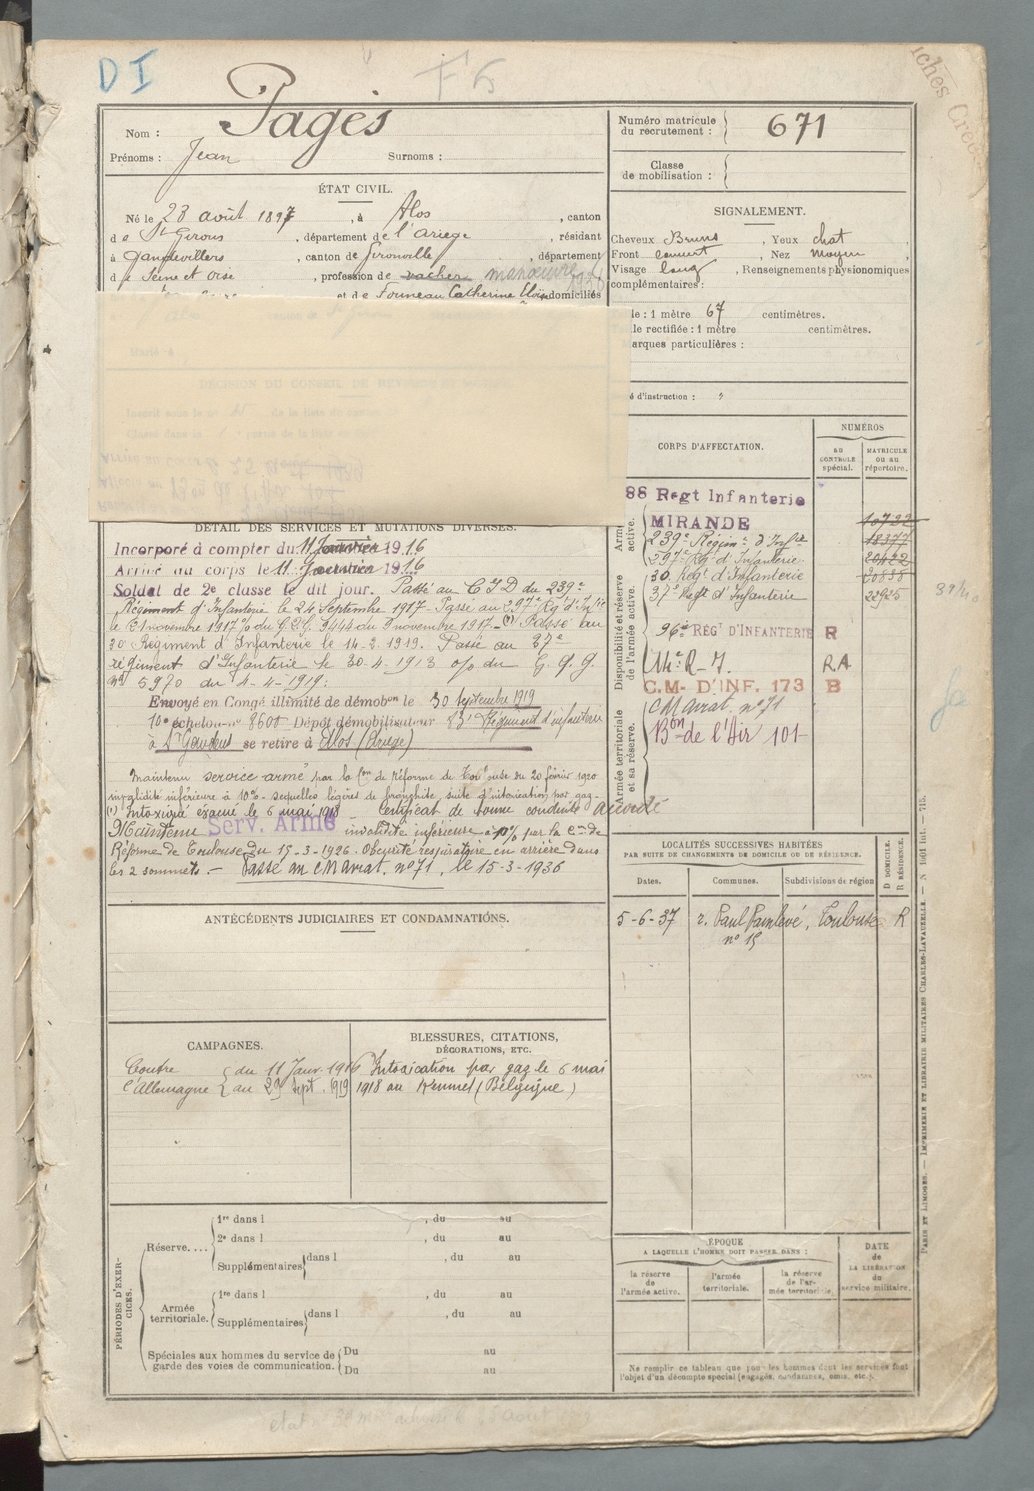 DI
F 5
Nom : Pagès
Prénoms : Jean Surnoms :
Numéro matricule du recrutement : 671
Classe de mobilisation :
ÉTAT CIVIL.
Né le 23 août 1897, à Alos, canton
de St Girons, département de l'ariege, résidant
à , canton de , département
de Seine et Oise, profession de vacher manœuvre
et de Fourneau Catherine Eloïse domiciliés
SIGNALEMENT.
Cheveux Bruns, Yeux chat
Front couvert, Nez moyen
Visage long, Renseignements physionomiques
complémentaires :
le : 1 mètre 67 centimètres.
le rectifiée : 1 mètre centimètres.
arques particulières :
é d'instruction :
DÉCISION DU CONSEIL DE RÉVISION ET MOTIFS.
CORPS D'AFFECTATION.
NUMÉROS
AU CONTROLE spécial.
MATRICULE OU AU répertoire.
88 Regt Infanterie
MIRANDE 10722
239e Régimt d'Infie 18377
297e Rgt d'Infanterie 20422
30. Regt d'Infanterie 20838
37e Regt d'Infanterie 22925
96e RÉGT D'INFANTERIE R
R.A
C.M- D'INF. 173 B
C M arrat. n° 71
Bon de l'Air 101-
Disponibilité et réserve de l'armée active.
Armée territoriale et sa réserve.
DÉTAIL DES SERVICES ET MUTATIONS DIVERSES.
Incorporé à compter du 11 Janvier 1916
Arrivé au corps le 11 Janvier 1916
Soldat de 2e classe le dit jour. Passé au C I D du 239e
Régiment d'Infanterie le 24 Septembre 1917- Passé au 297e Rgt d'Infie
le 21 novembre 1917 % du G.Q.G. 9444 du 8 novembre 1917- (1) Passé au
30 Régiment d'Infanterie le 14-2-1919. Passé au 37e
régiment d'Infanterie le 30-4-1918 o/o du G. Q. G.
n° 5970 du 4-4-1919:
Envoyé en Congé illimité de démobon le 30 septembre 1919
10e échelon n° 8600 Dépôt démobilisateur 83e Régiment d'infanterie
à St Gaudens se retire à Alos (Ariège)
Maintenu service armé par la Con de Réforme de du 20 février 1920
invalidité inférieure à 10%- sequelles légères de bronchite, suite d'intoxication par gaz-
(1) Intoxiqué évacué le 6 mai 1918 - Certificat de bonne conduite accordé
Maintenu Serv. Armé invalidité inférieure à 10% par la Con de
Réforme de Toulouse du 15-3-1926. Obscurité respiratoire en arrière dans
les 2 sommets.- Passé au C M arrat. n° 71, le 15-3-1936
ANTÉCÉDENTS JUDICIAIRES ET CONDAMNATIONS.
LOCALITÉS SUCCESSIVES HABITÉES
PAR SUITE DE CHANGEMENTS DE DOMICILE OU DE RÉSIDENCE.
Dates. Communes. Subdivisions de région D DOMICILE. R RÉSIDENCE.
5-6-37 r. Paul Painlevé, Toulouse R
n° 15
CAMPAGNES.
Contre du 11 Janv. 1916
l'Allemagne au 29 Sept. 1919
BLESSURES, CITATIONS,
DÉCORATIONS, ETC.
Intoxication par gaz le 6 mai
1918 au Kemmel (Belgique)
PÉRIODES D'EXERCICES.
Réserve....
1re dans l , du au
2e dans l , du au
Supplémentaires dans l , du au
Armée territoriale.
1re dans l , du au
Supplémentaires dans l , du au
Spéciales aux hommes du service de garde des voies de communication. Du au
Du au
ÉPOQUE
A LAQUELLE L'HOMME DOIT PASSER DANS :
la réserve de l'armée active.
l'armée territoriale.
la réserve de l'armée territoriale.
DATE de LA LIBÉRATION du service militaire.
Ne remplir ce tableau que pour les hommes dont les services font
l'objet d'un décompte spécial (engagés, condamnés, omis, etc.).
PARIS ET LIMOGES. — IMPRIMERIE ET LIBRAIRIE MILITAIRES CHARLES-LAVAUZELLE.